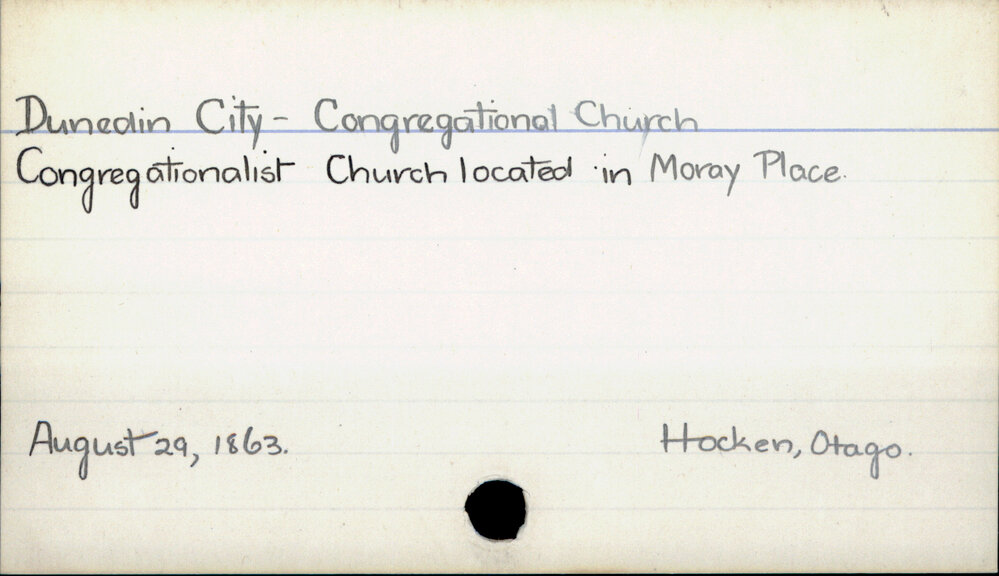 Dunedin City - Congregational Church
Congregationalist Church located in Moray Place.
August 29, 1863.
Hocken, Otago.